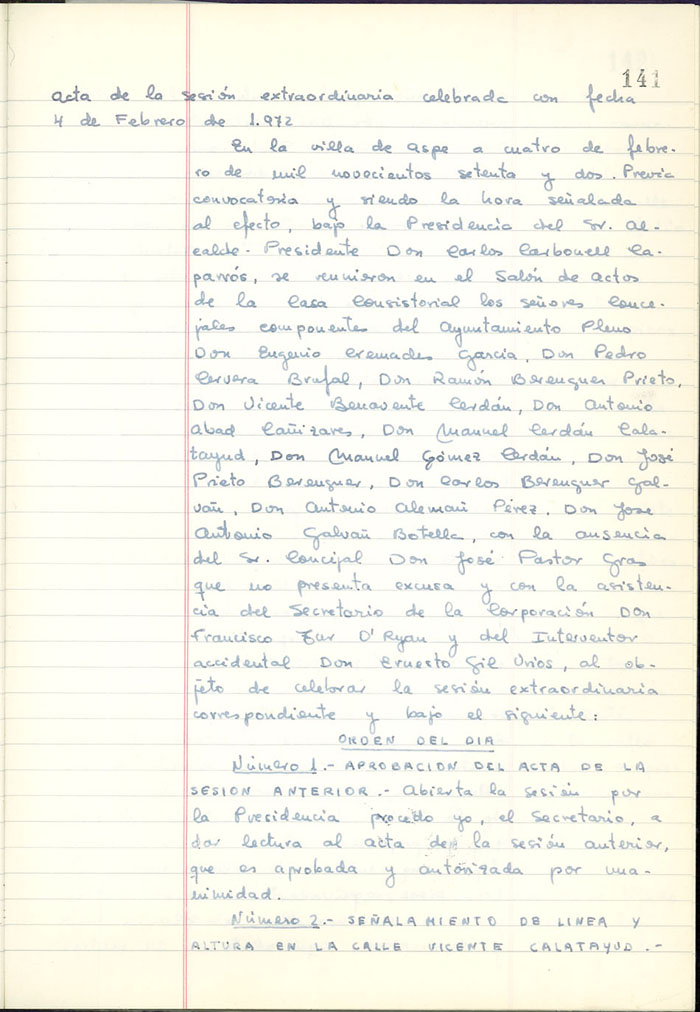 141
Acta de la sesión extraordinaria celebrada con fecha
4 de Febrero de 1.972
En la villa de Aspe a cuatro de febre-
ro de mil novecientos setenta y dos. Previa
convocatoria y siendo la hora señalada
al efecto, bajo la Presidencia del Sr. Al-
calde-Presidente Don Carlos Carbonell Ca-
parrós, se reunieron en el Salón de Actos
de la Casa Consistorial los señores Conce-
jales componentes del Ayuntamiento Pleno
Don Eugenio Cremades García, Don Pedro
Cervera Brufal, Don Ramón Berenguer Prieto,
Don Vicente Benavente Cerdán, Don Antonio
Abad Cañizares, Don Manuel Cerdán Cala-
tayud, Don Manuel Gómez Cerdán, Don José
Prieto Berenguer, Don Carlos Berenguer Gal-
vañ, Don Antonio Alemañ Pérez, Don José
Antonio Galvañ Botella, con la ausencia
del Sr. Concejal Don José Pastor Gras
que no presenta excusa y con la asisten-
cia del Secretario de la Corporación Don
Francisco O'Ryan y del Interventor
accidental Don Ernesto Gil Urios, al ob-
jeto de celebrar la sesión extraordinaria
correspondiente y bajo el siguiente:
ORDEN DEL DIA
Número 1.- APROBACION DEL ACTA DE LA
SESION ANTERIOR.- Abierta la sesión por
la Presidencia procedo yo, el Secretario, a
dar lectura al acta de la sesión anterior,
que es aprobada y autorizada por una-
nimidad.
Número 2.- SEÑALAMIENTO DE LINEA Y
ALTURA EN LA CALLE VICENTE CALATAYUD.-